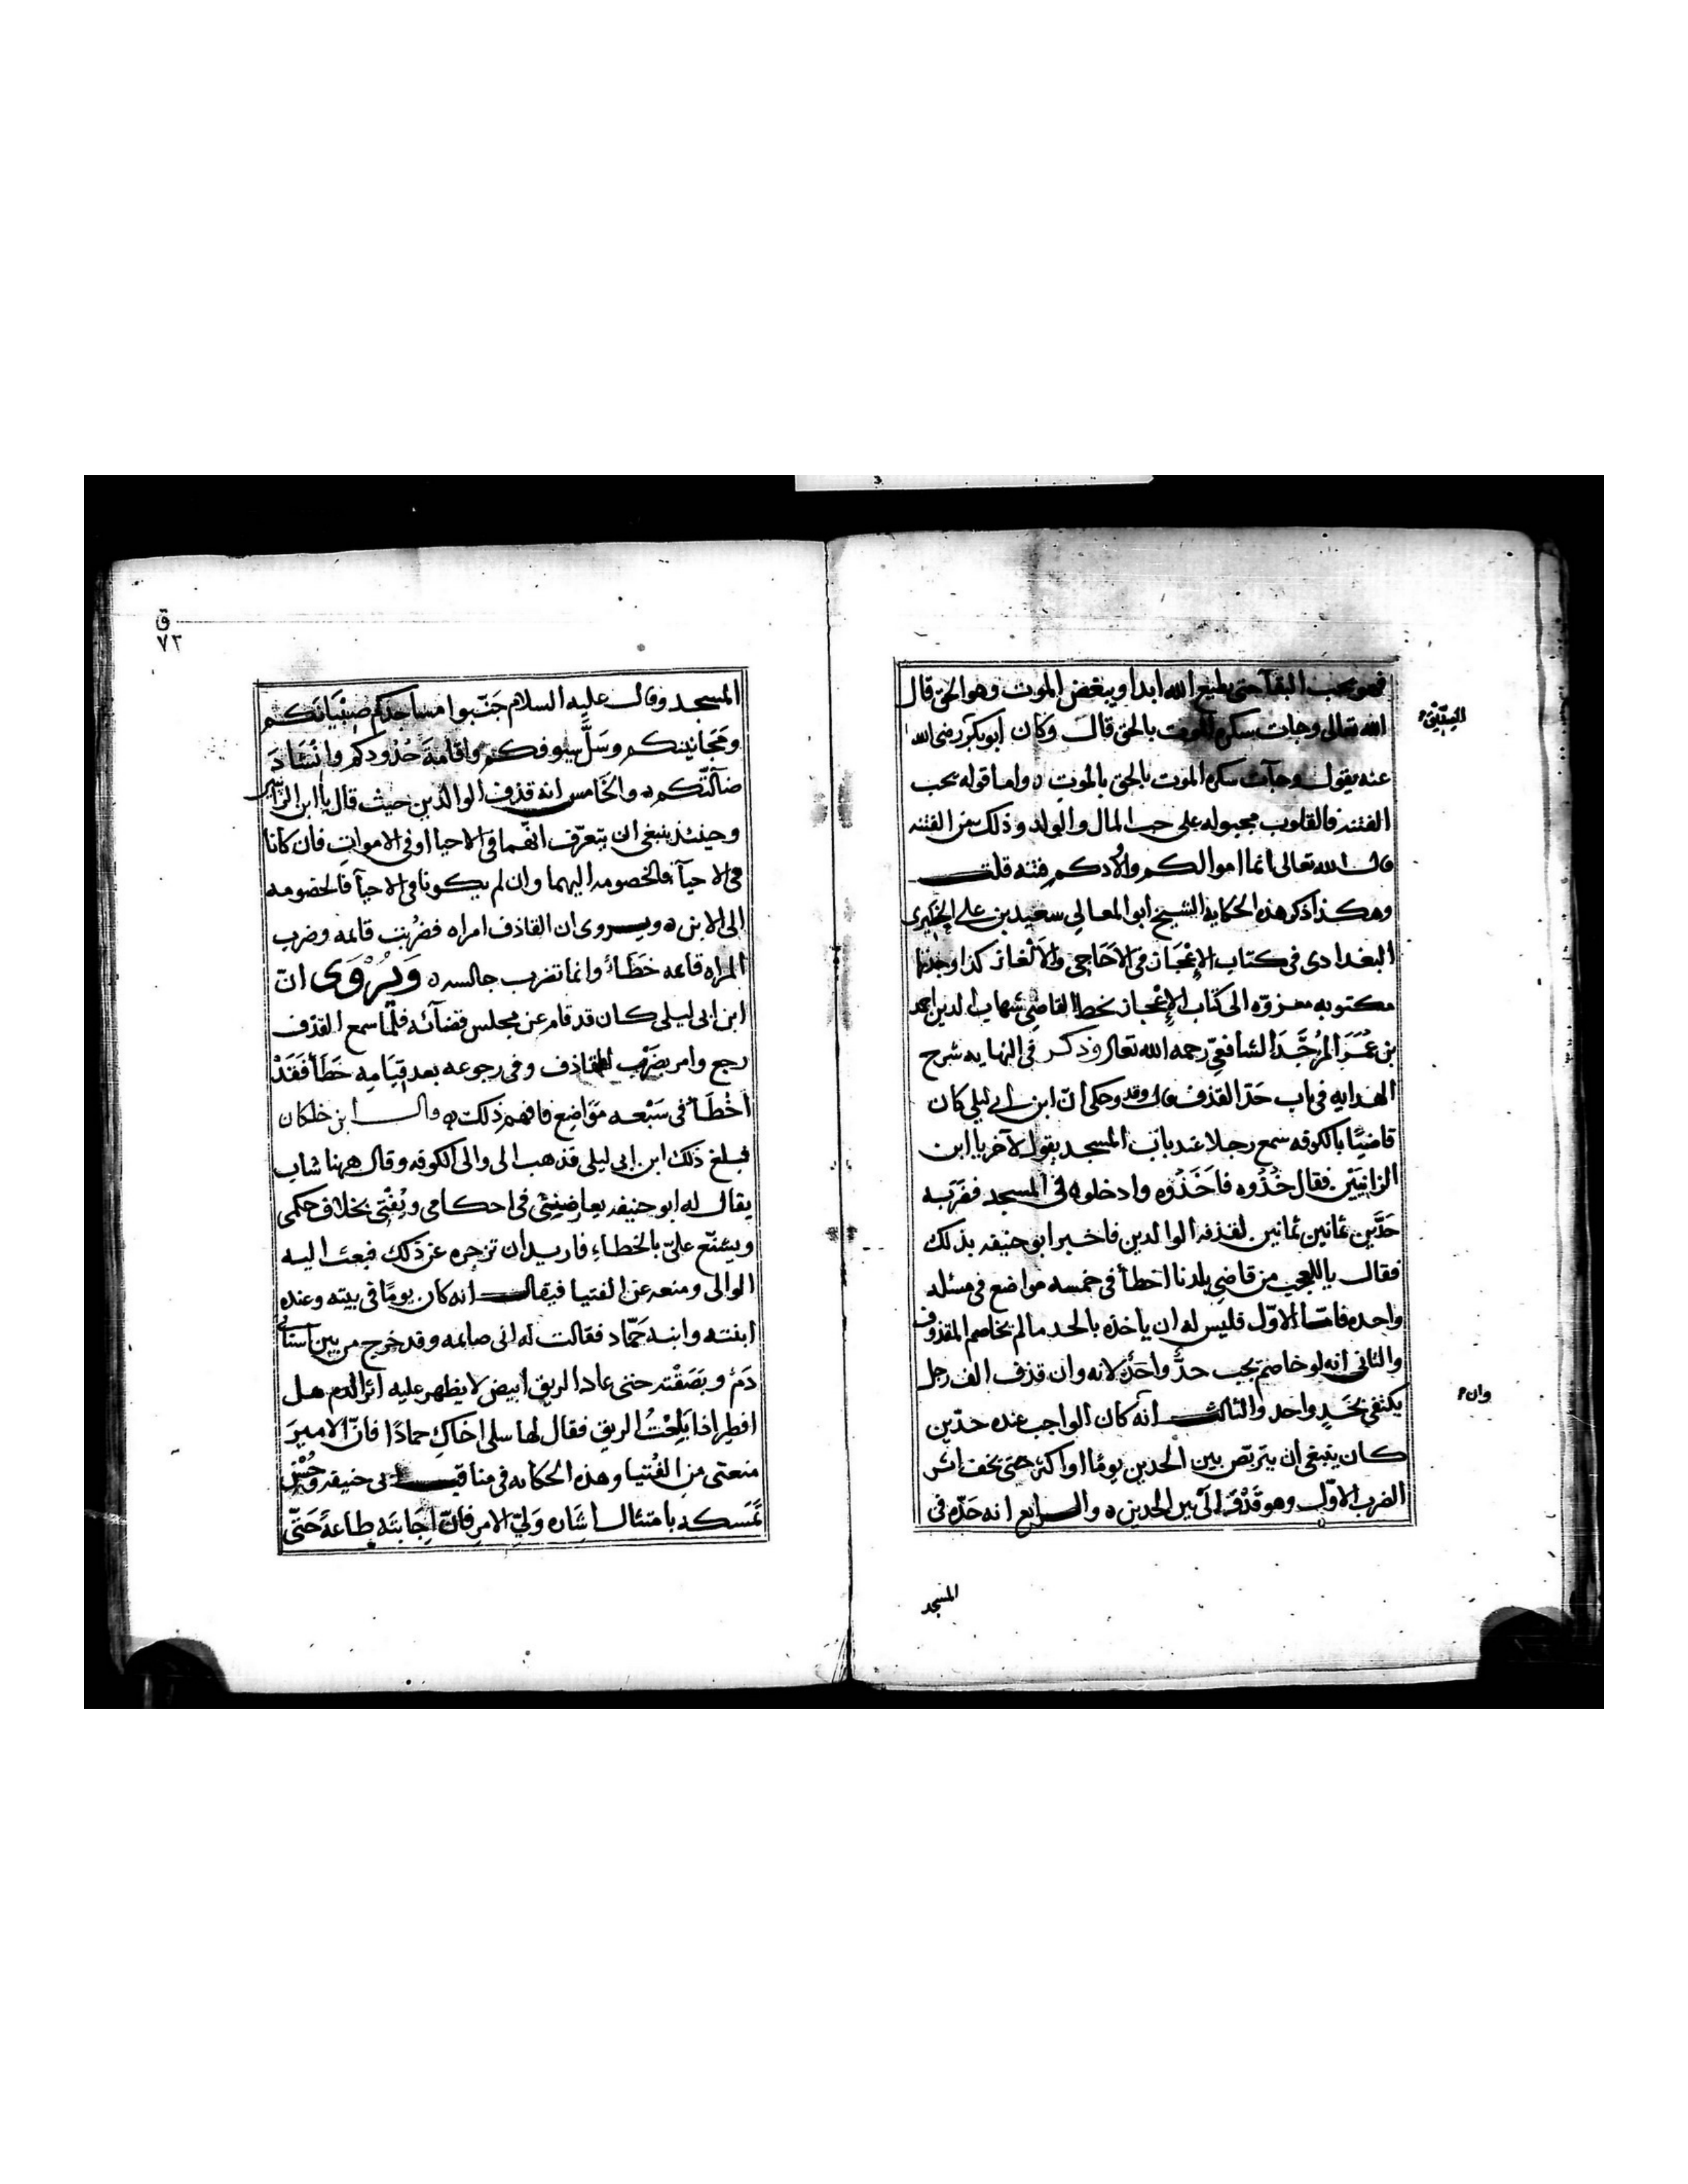 فهو يحب البقآ حتى يطيع الله ابدا ويبغض الموت وهو الحق قال
الله تعالى وجات سكره الموت بالحق قال وكان ابوبكر رضى الله
عنه يقول وجآت سكره الموت بالحق بالموت ه واما قوله يحب
الفتنه فالقلوب مجبوله على حب المال والولد وذلك من الفتنه
قال الله تعالى انما اموالكم واولادكم فتنه قلت
وهكذا ذكر هذه الحكايه الشيخ ابو المعالي سعيد بن على
البغدادى فى كتاب الإعْجاز فى الاَحَاجى والاَلْغاز كذا وجدنا
مكتوبه معزوّه الى كتاب الإعْجاز بخط القاضِى شهاب الدين احمد
بن عُمَرَ الشافعىّ رحمه الله تعالى وذكر فى النهايه شرح
الهدايه فى باب حَدّ القذف قال وقد وحكى انّ ابن ابى ليلى كان
قاضيًا بالكوفه سمع رجلا عند باب المسجد يقول لآخر يا ابن
الزانيَيْن فقال خُذُوه فاَخَذُوه وادخلوه فى المسجد فضَربه
حَدَّين ثمانين ثمانين لقذفه الوالدين فاخبر ابو حنيفه بذلك
فقال ياللعجب من قاضِى بلدنا اخطأ فى خمسه مواضع فى مسئله
واحده فامّا الاوّل فليس له ان ياخذه بالحد مالم يخاصم المقذوف
والثانى انه لو خاصم يجب حدٌّ واحدٌ لانه وان قذف الف رجل
يكتفى بحَدٍ واحد والثالث انه كان الواجب عنده حدّين
كان ينبغى ان يتربّص بين الحدين يومًا او اكثر حتى يخف اثر
الضرب الاوّل وهو بين الحدين ه والرابع انه حَدّه فى
وان
المسجد
ق
٧٢
المسجد وقال عليه السلام جَنّبوا مساجدكم صِبْيَانَكم
ومَجَانينكم وسَلَّ سيوفكم واقامَةَ حُدُودكم وانشَادَ
ضآلّتكم ه والخَامس انه قذف الوالدين حيث قال يا ابن الزّانيين
وحينئذ ينبغى ان يتعرّف انّهما فى الاحيا او فى الاموات فان كانا
فى الاحيآ فالخصومه اليهما وان لم يكونا فى الاحيآ فالخصومه
الى الابن ه ويروى ان القاذف امراه فضُربت قائمه وضرب
المراه قاعه خَطَأ وانما تضرب جالسه ه وَيُرْوَى انّ
ابن ابى ليلى كان قد قام عن مجلس قضآئه فلمّا سمع القذف
رجع وامر بضَرْب القاذف وفى رجوعه بعد قِيَامِه خَطَأ فَقَدْ
اَخْطَأ فى سَبْعه مَوَاضِع فافهم ذلك ه وقال ابن خلكان
فبلغ ذلك ابن ابى ليلى فذهب الى والى الكوفه وقال ههنا شاب
يقال له ابو حنيفه يعارضنِى فى احكامى ويُفْتِى بخلاف حكمى
ويشنّع علىّ بالخطاءِ فاريد ان تزجره عن ذلك فبعث اليه
الوالى ومنعه عن الفتيا فيقال انه كان يومًا فى بيته وعنده
ابنته وابنه حَمّاد فقالت له انى صائمه وقد خرج من بين اسنانى
دَمٌ وبَصَقْته حتى عاد الريق ابيض لا يظهر عليه اثر الدم هل
افطر اذا بَلِعْتُ الريق فقال لها سلى اخاكِ حمادًا فانّ الاميرَ
منعنى مِن الفُتيا وهذه الحكايه فى مناقب ابى حنيفه وحُسْن
تَمَسكه بامتثال اشَاره وَلِيّ الامرِ فانّ اِجَابتَه طاعهً حَتّى